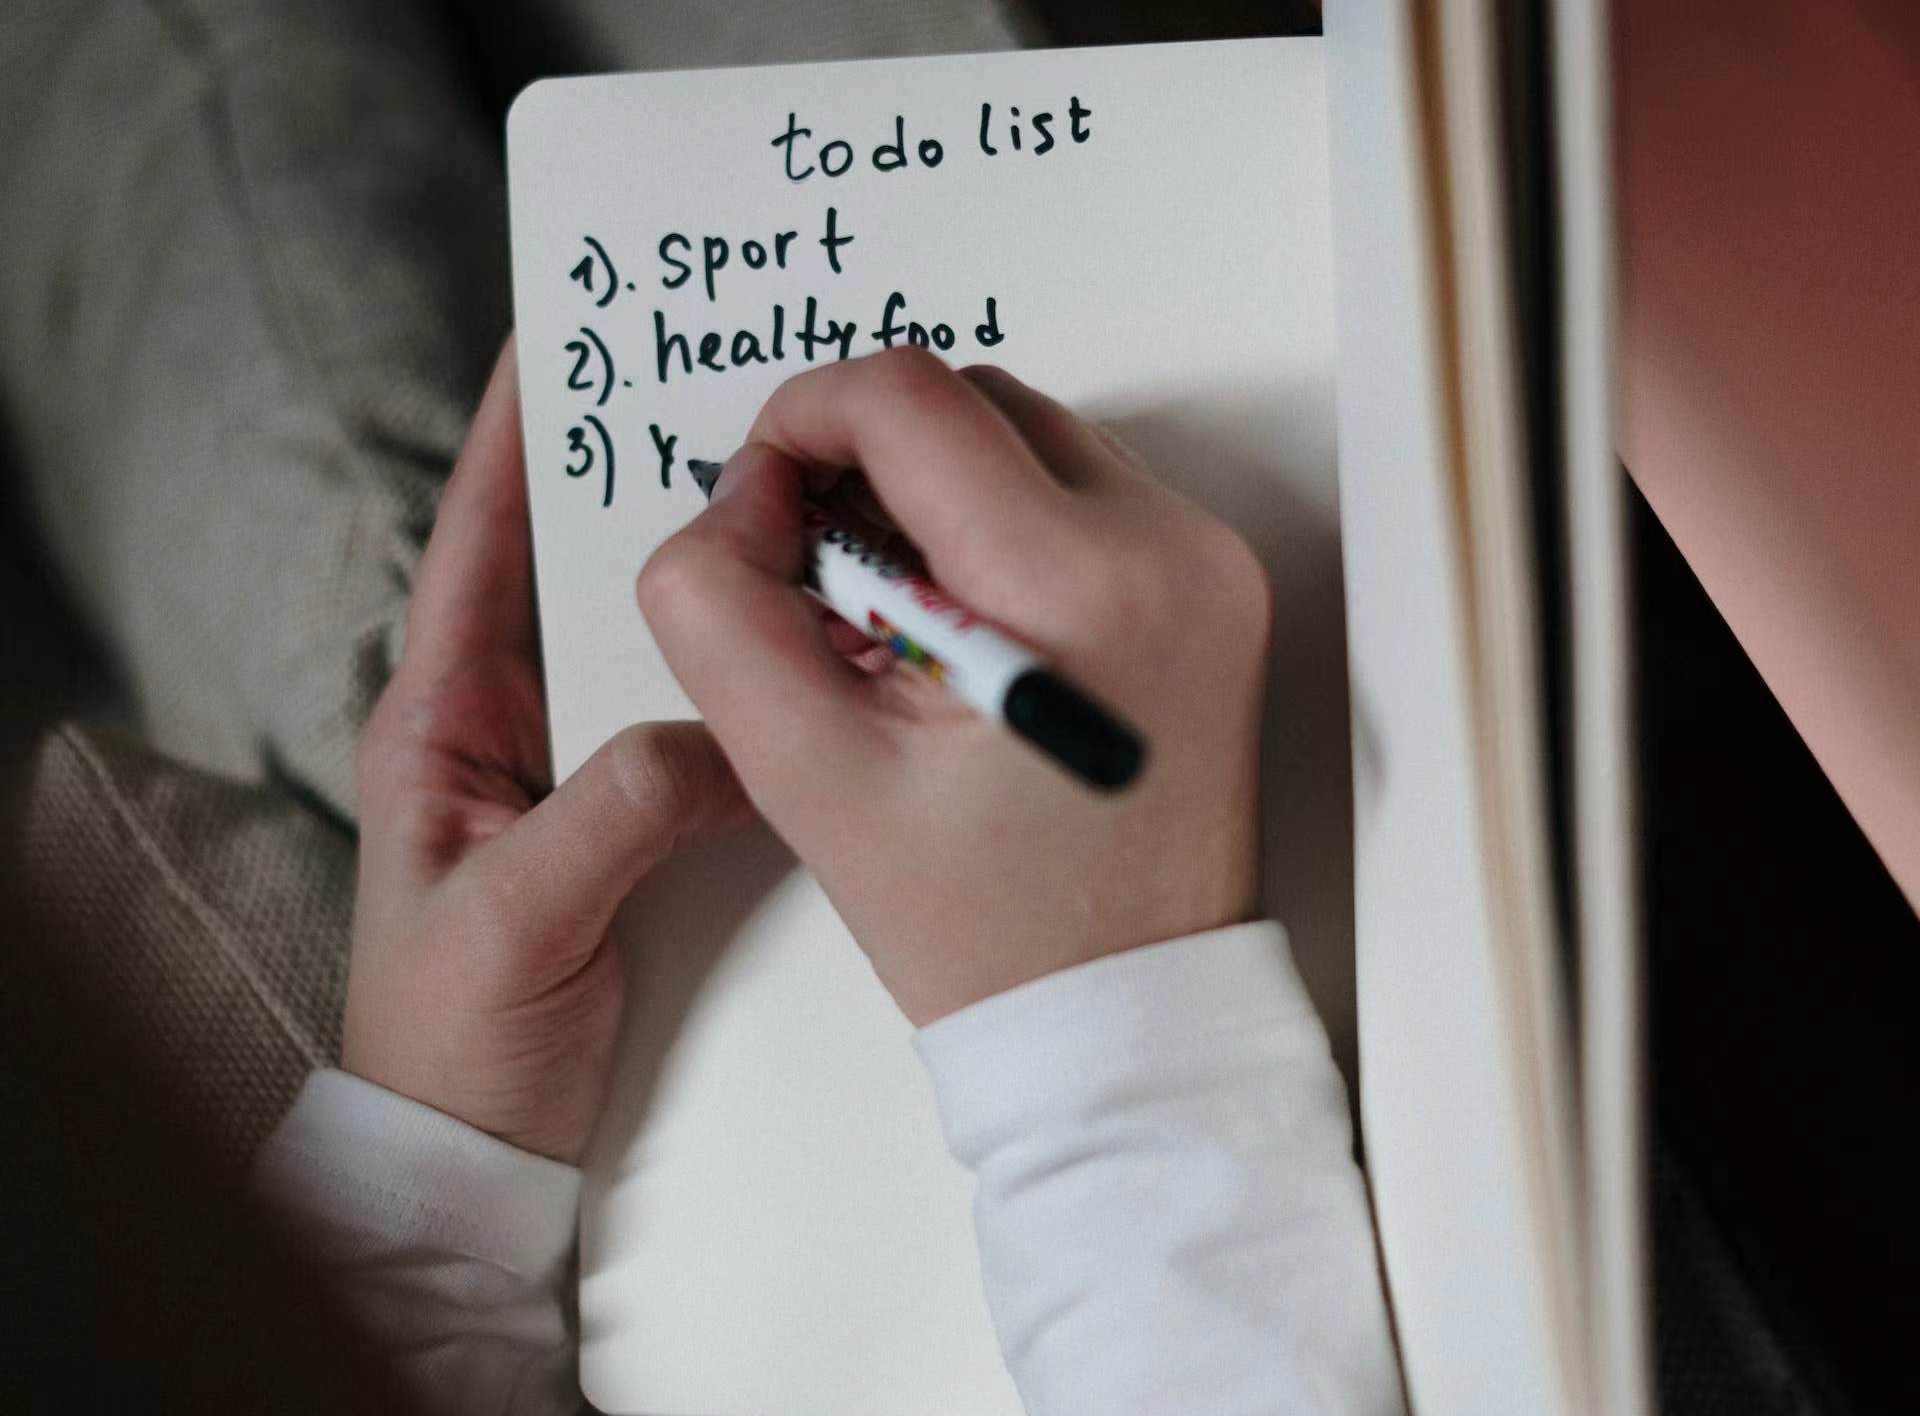 to do list
1). sport
2). healty food
3) y